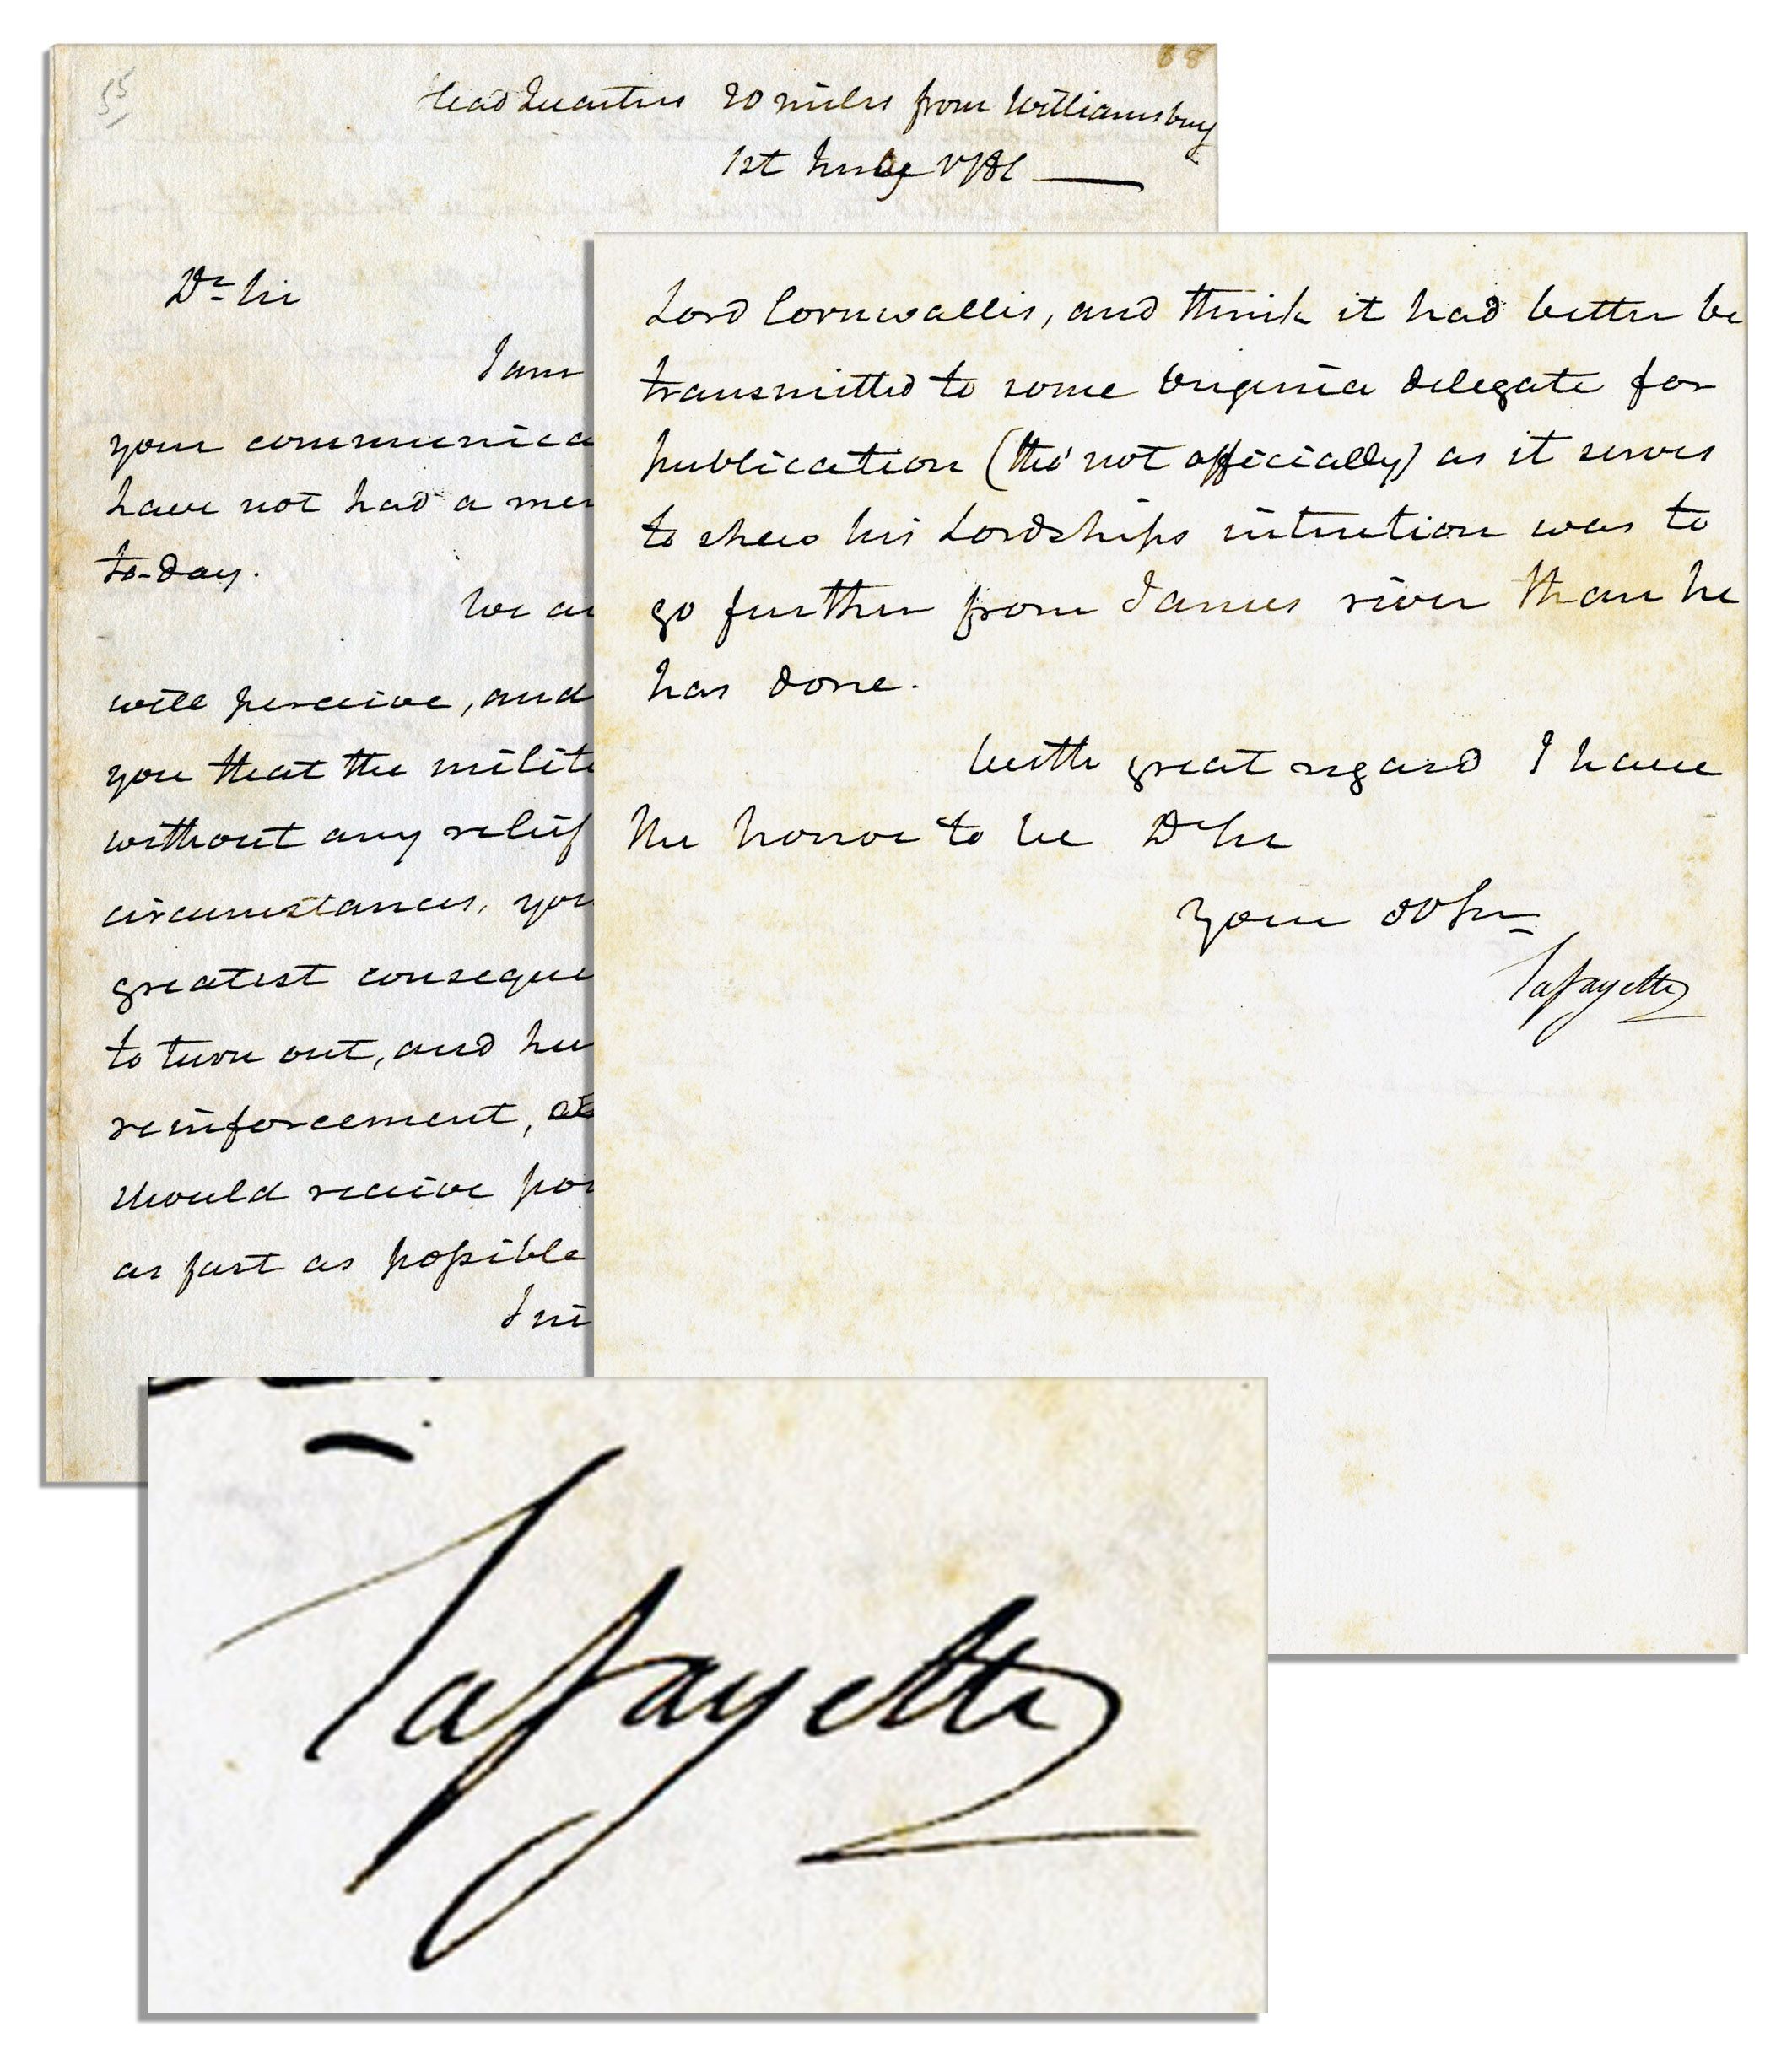 55
88
Head Quarters 20 miles from Williamsburg
1st July 1781
Dr Sir
I am
your communica
have not had a
to-day.
We
will perceive, and
you that the milit
without any relief
circumstances, you
greatest conseque
to turn out, and
reinforcement,
should receive
as fast as possible
Lord Cornwallis, and think it had better be
transmitted to some Virginia delegate for
publication (tho' not officially) as it serves
to shew his Lordships intention was to
go further from James river than he
has done.
With great regard I have
the honor to be Dr Sir
Your
Lafayette
Lafayette